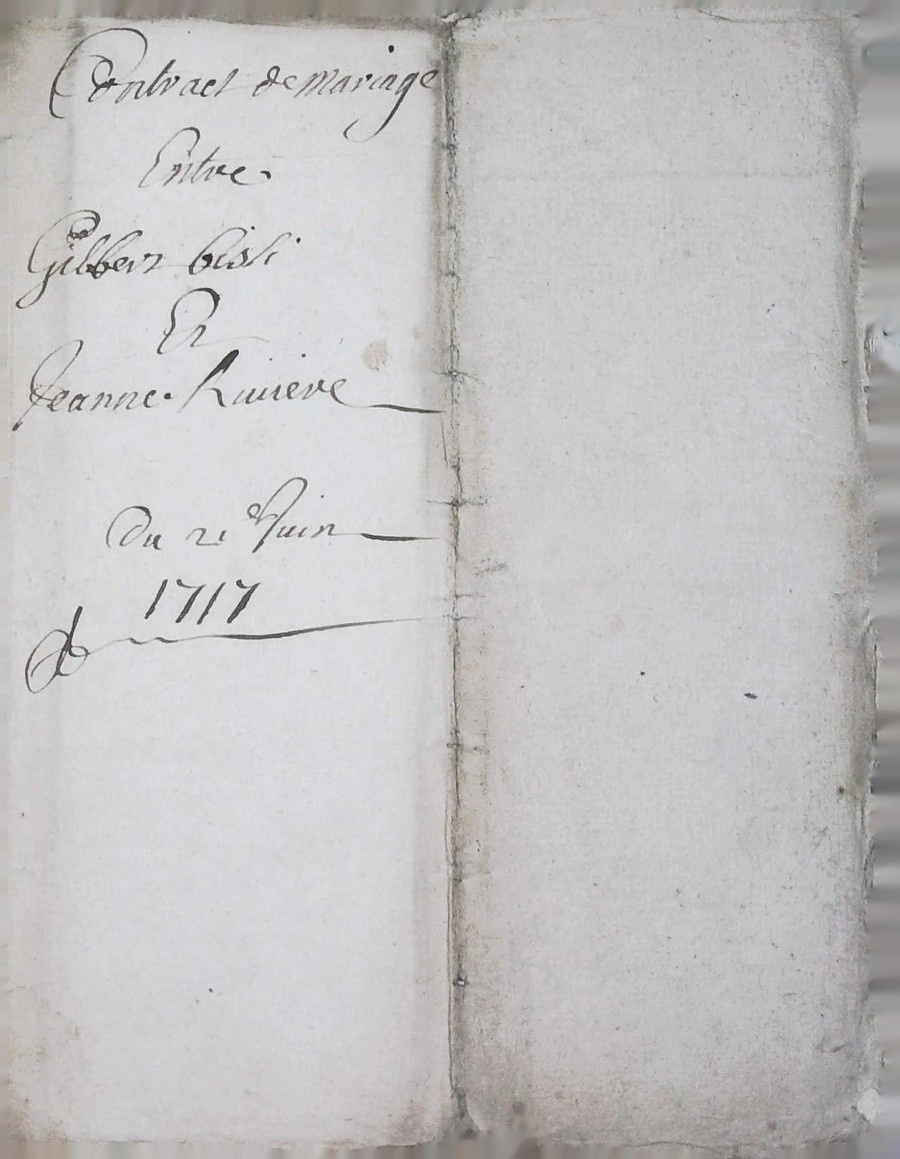 Contract de mariage
Entre
Gilbert bissi
Et
Jeanne Riviere
Du 21e Juin
1717